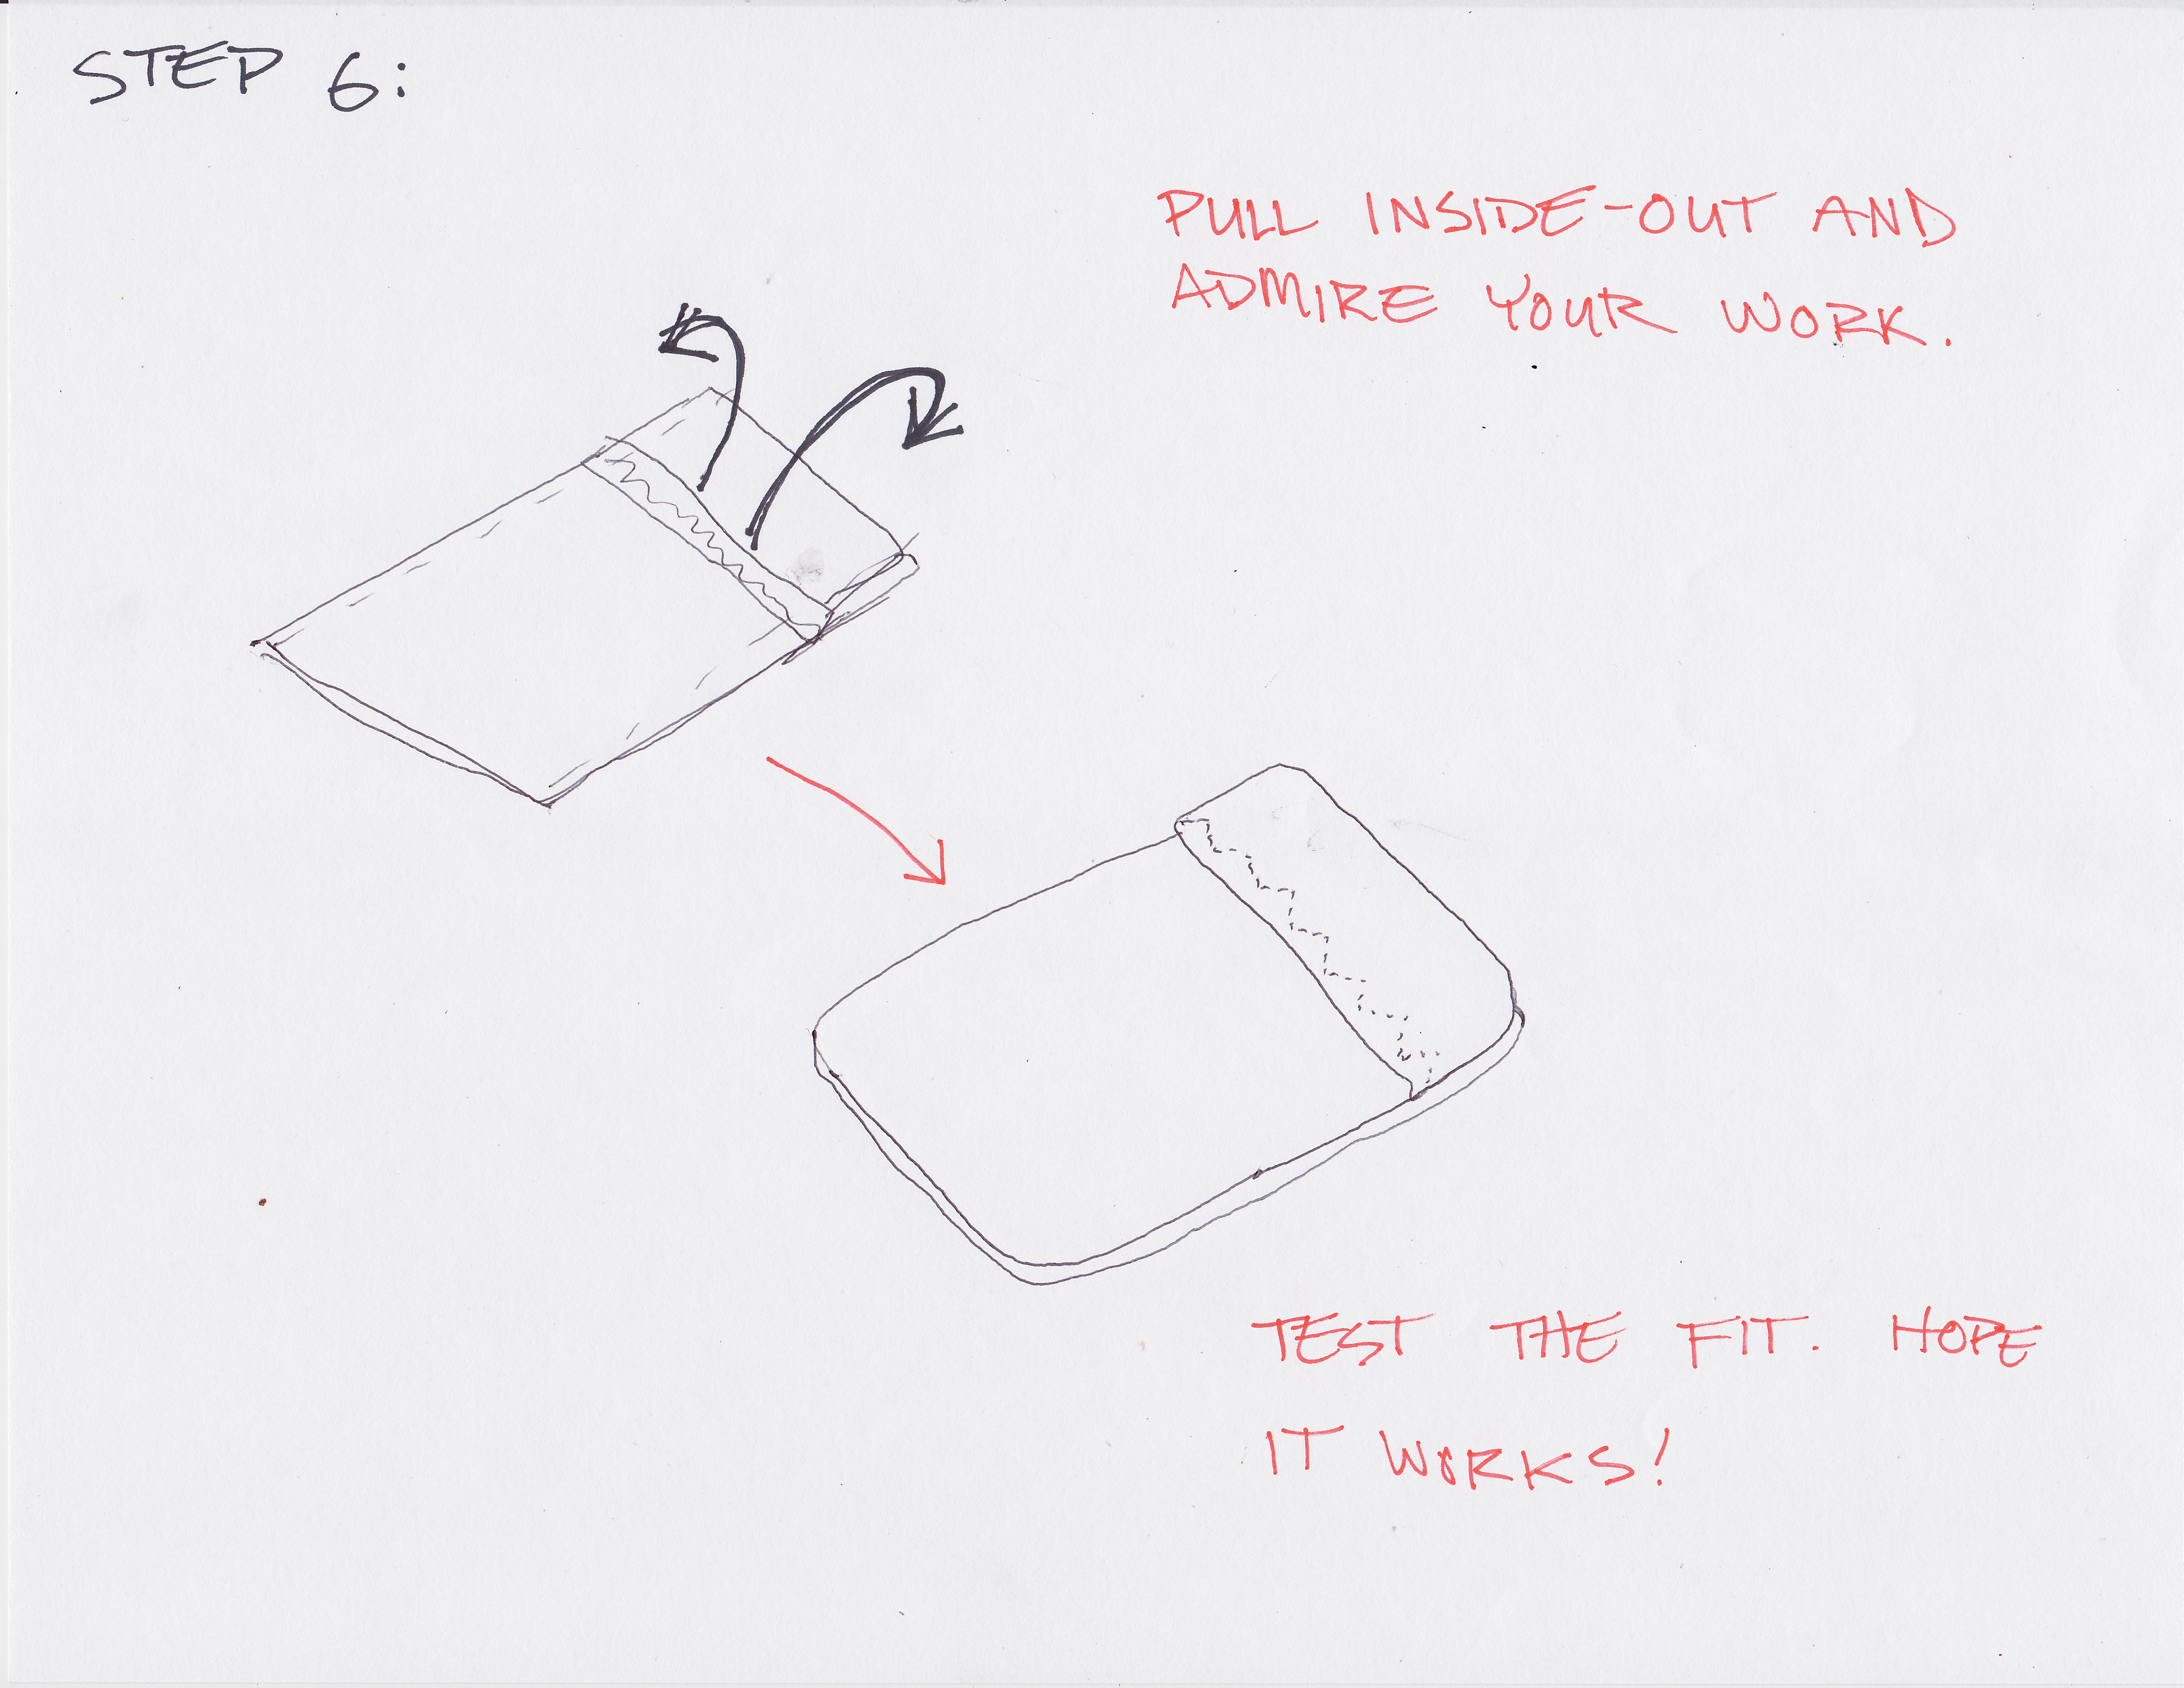 STEP 6:
PULL INSIDE-OUT AND
ADMIRE YOUR WORK.
TEST THE FIT. HOPE
IT WORKS!